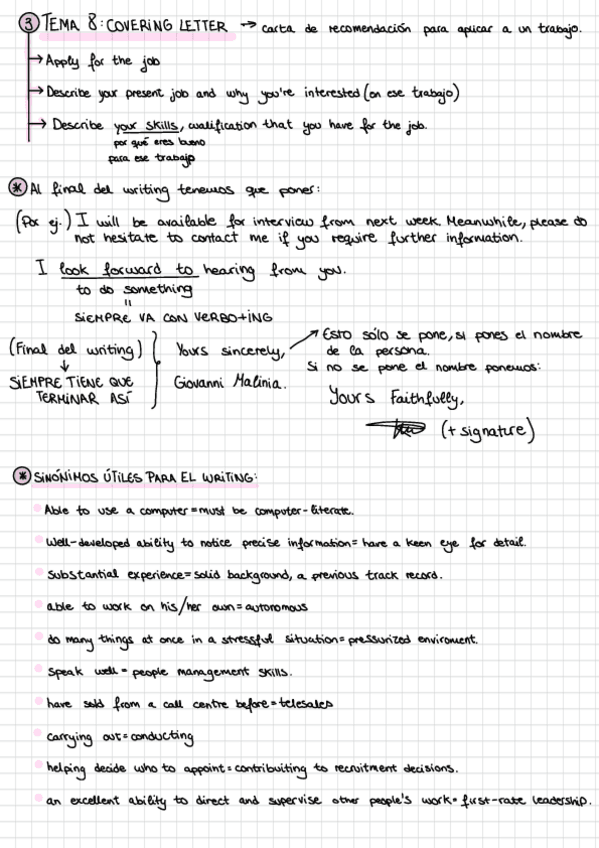 ③ TEMA 8: COVERING LETTER → carta de recomendación para aplicar a un trabajo.
→ Apply for the job
→ Describe your present job and why you're interested (en ese trabajo)
→ Describe your skills, cualification that you have for the job.
por qué eres bueno
para ese trabajo
* Al final del writing tenemos que poner:
(Por ej.) I will be available for interview from next week. Meanwhile, please do
not hesitate to contact me if you require further information.
I look forward to hearing from you.
to do something
=
SIEMPRE VA CON VERBO+ING
(Final del writing)
↓
SIEMPRE TIENE QUE
TERMINAR ASÍ
Yours sincerely,
Giovanni Malinia.
Esto sólo se pone, si pones el nombre
de la persona.
Si no se pone el nombre ponemos:
Yours Faithfully,
(+ signature)
* SINÓNIMOS ÚTILES PARA EL WRITING:
Able to use a computer = must be computer-literate.
Well-developed ability to notice precise information = have a keen eye for detail.
Substantial experience = solid background, a previous track record.
able to work on his/her own = autonomous
do many things at once in a stressful situation = pressurized enviroment.
Speak well = people management skills.
have sold from a call centre before = telesales
carrying out = conducting
helping decide who to appoint = contribuiting to recruitment decisions.
an excellent ability to direct and supervise other people's work = first-rate leadership.